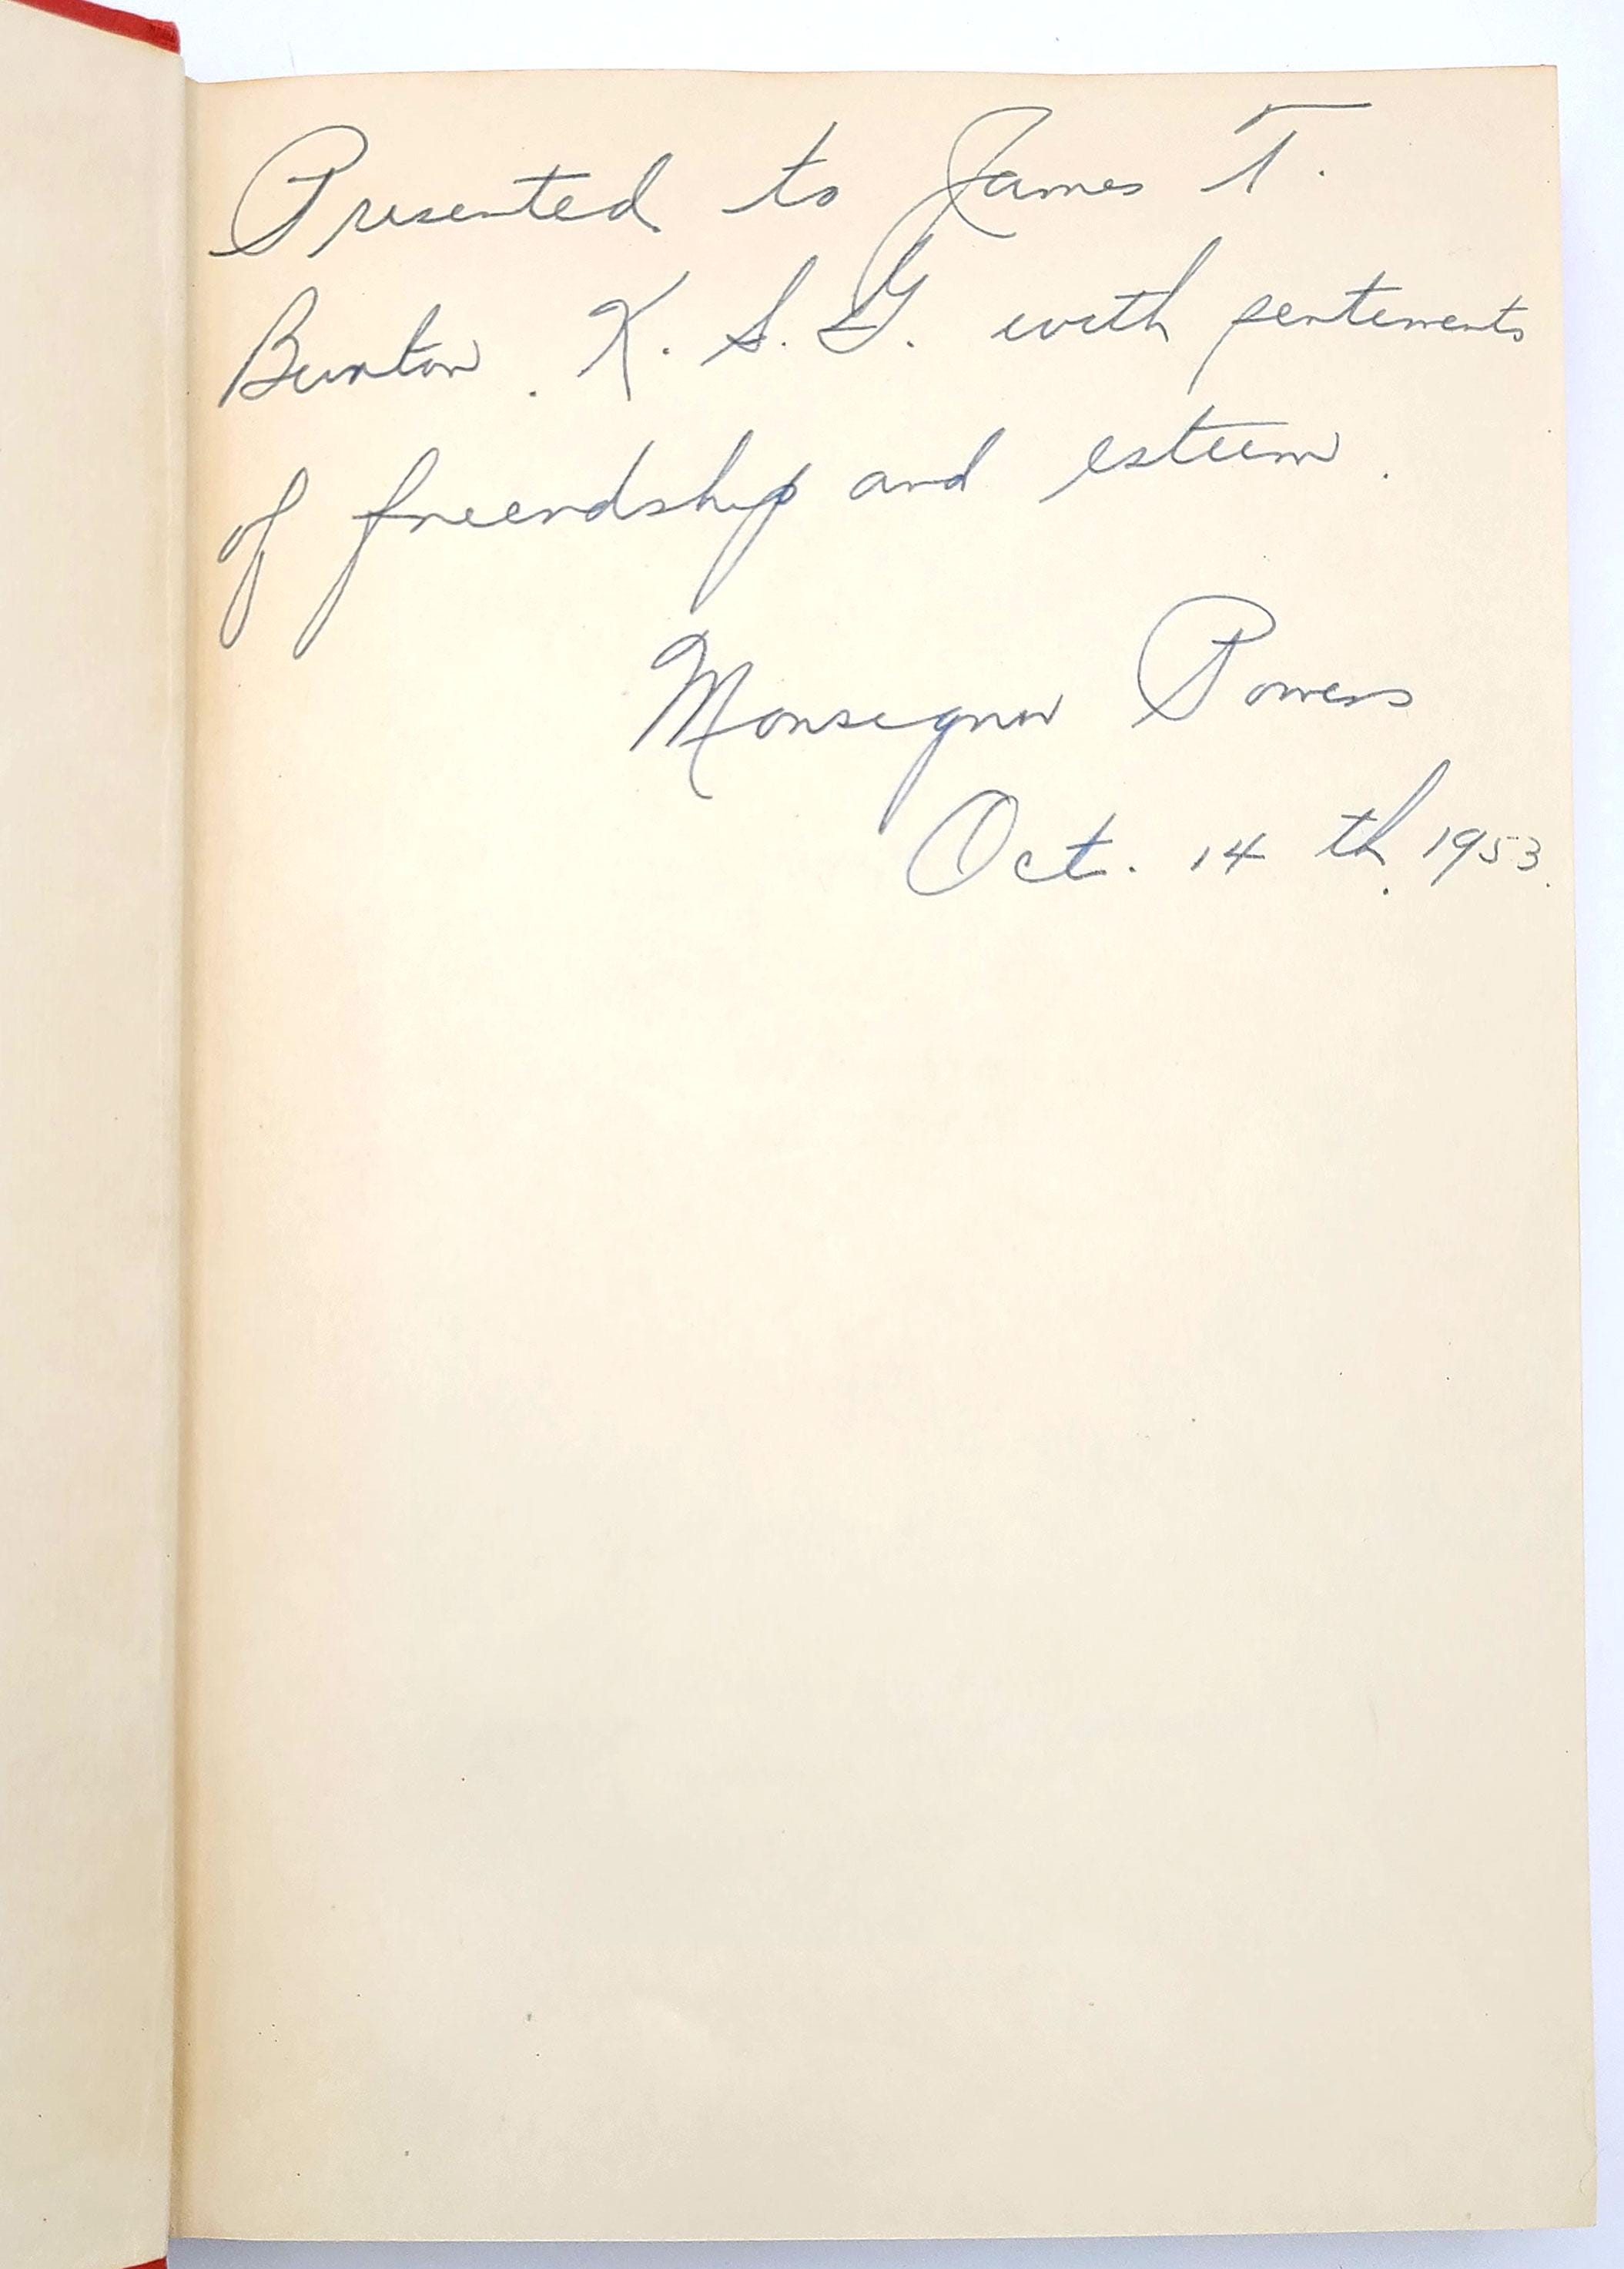 Presented to James T.
Burton. K. S. G. with sentiments
of friendship and esteem.
Monsignor Powers
Oct. 14 th. 1953.